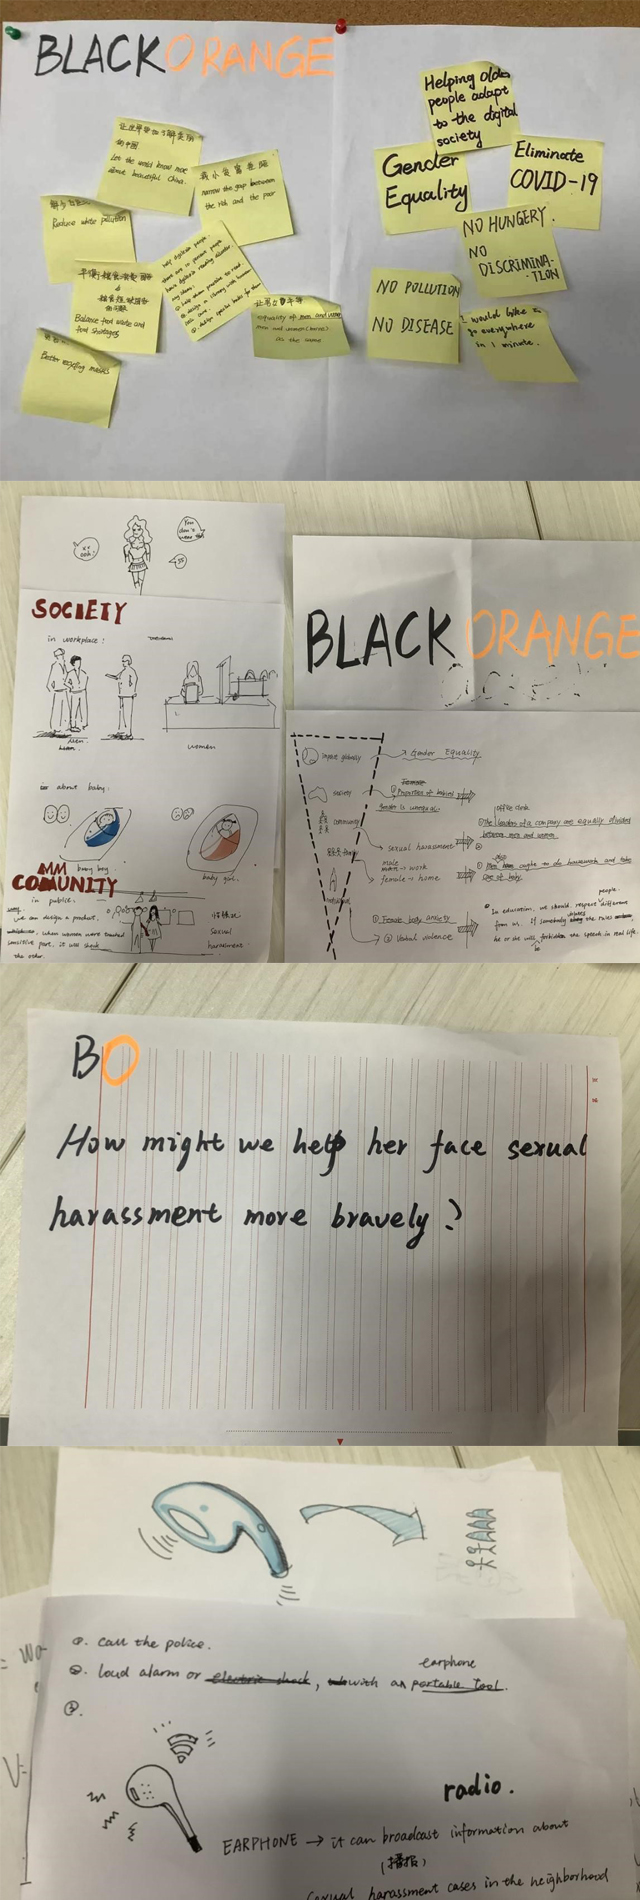 BLACKORANGE
让世界更加了解美丽
的中国
Let the world know more
about beautiful China.
缩小贫富差距
Narrow the gap between
the rich and the poor
Reduce white pollution
平衡粮食浪费
Balance food waste and
food shortages
help dyslexia people
让男女平等
equality of men and women
men and women
as the same
Better recycling masks
Helping older
people adapt
to the digital
society
Gender
Equality
Eliminate
COVID-19
NO HUNGERY.
NO
DISCRIMINA-
TION
NO POLLUTION
NO DISEASE
I would like to
go everywhere
in 1 minute.
You
don't
wear
SOCIETY
in workplace:
men
women
about baby:
baby boy
baby girl.
COMMUNITY
in public.
we can design a product.
when women were touched
sensitive part, it will shock
the other.
性骚扰
sexual
harassment
BLACK ORANGE
impact globally
→ Gender Equality
society
Female
① Properties of babies
Gender is unequal.
community
office clerk
① The leaders of a company are equally divided
between men and women
sexual harassment
②
family
male
→ work
female → home
Men ought to do housework and take
care of baby.
① Female body anxiety
② Verbal violence
people.
In education, we should respect different
from us. If somebody the rules
he or she will be the speech in real life.
BO
How might we help her face sexual
harassment more bravely?
①. call the police.
earphone
②. loud alarm or electric shock, with an portable tool.
③.
radio.
EARPHONE → it can broadcast information about
(播报)
sexual harassment cases in the neighborhood